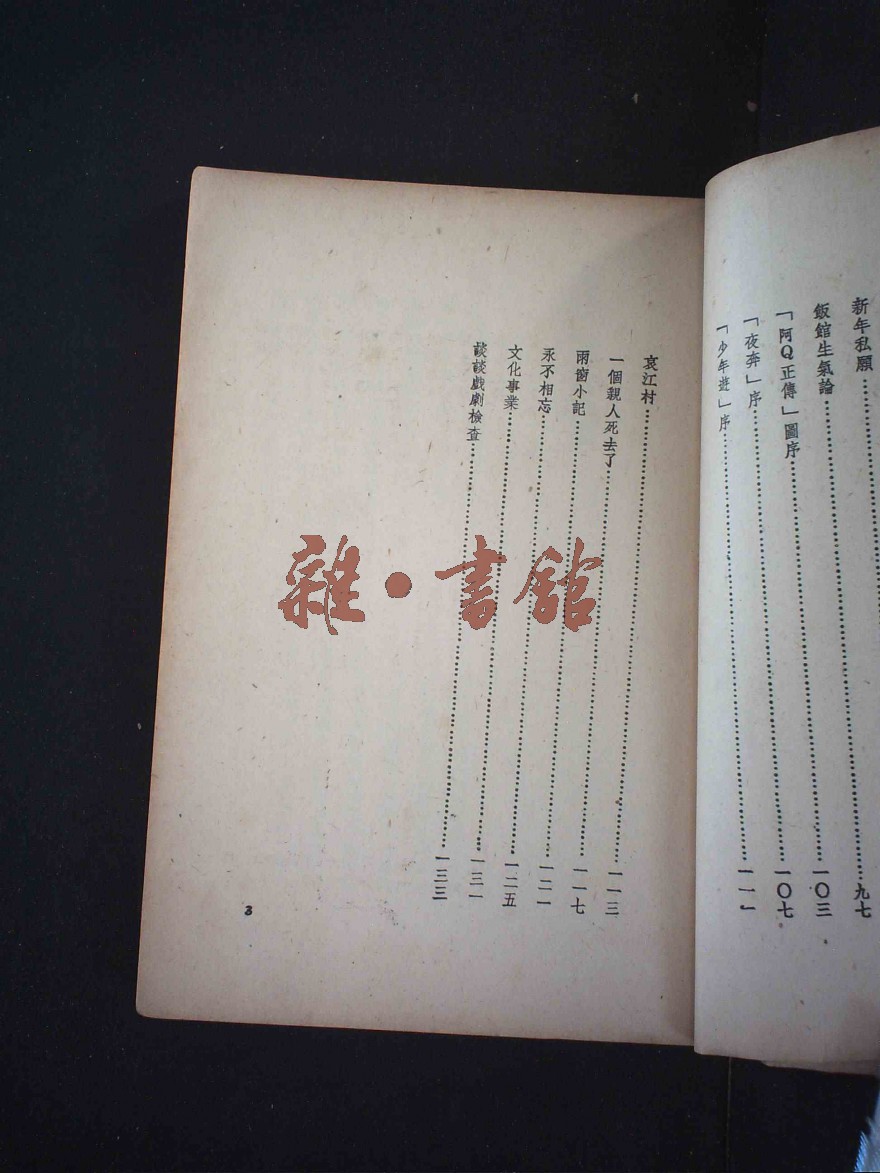 新年私願
飯館生氣論……九七
「阿Q正傳」圖序……一〇三
「夜奔」序……一〇七
「少年遊」序……一一一
哀江村……一一三
一個親人死去了……一一七
雨窗小記……一二一
永不相忘……一二五
文化事業……一三一
談談戲劇檢查……一三三
3
雜·書館